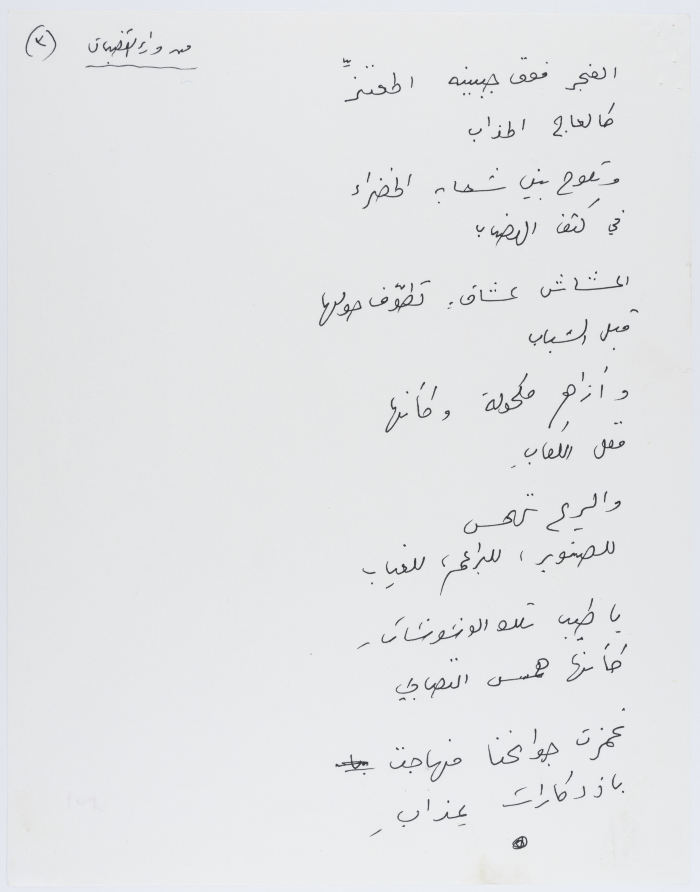 (٧) من وراء القضبان
الفجر فوق جبينه المعتزّ
كالعاج المذاب
وتلوح بين شعابه الخضراء
في كنف الهضاب
عشاق تطوّف حولها
قبل الشباب
و مكحولة وكأنها
الكعاب
والريح تهمس
للصنوبر، للبراعم، للغياب
يا طيب تلك الوشوشات
كأنها همس التصابي
غمزت جوانحنا فهاجت
باذدكارات عذاب